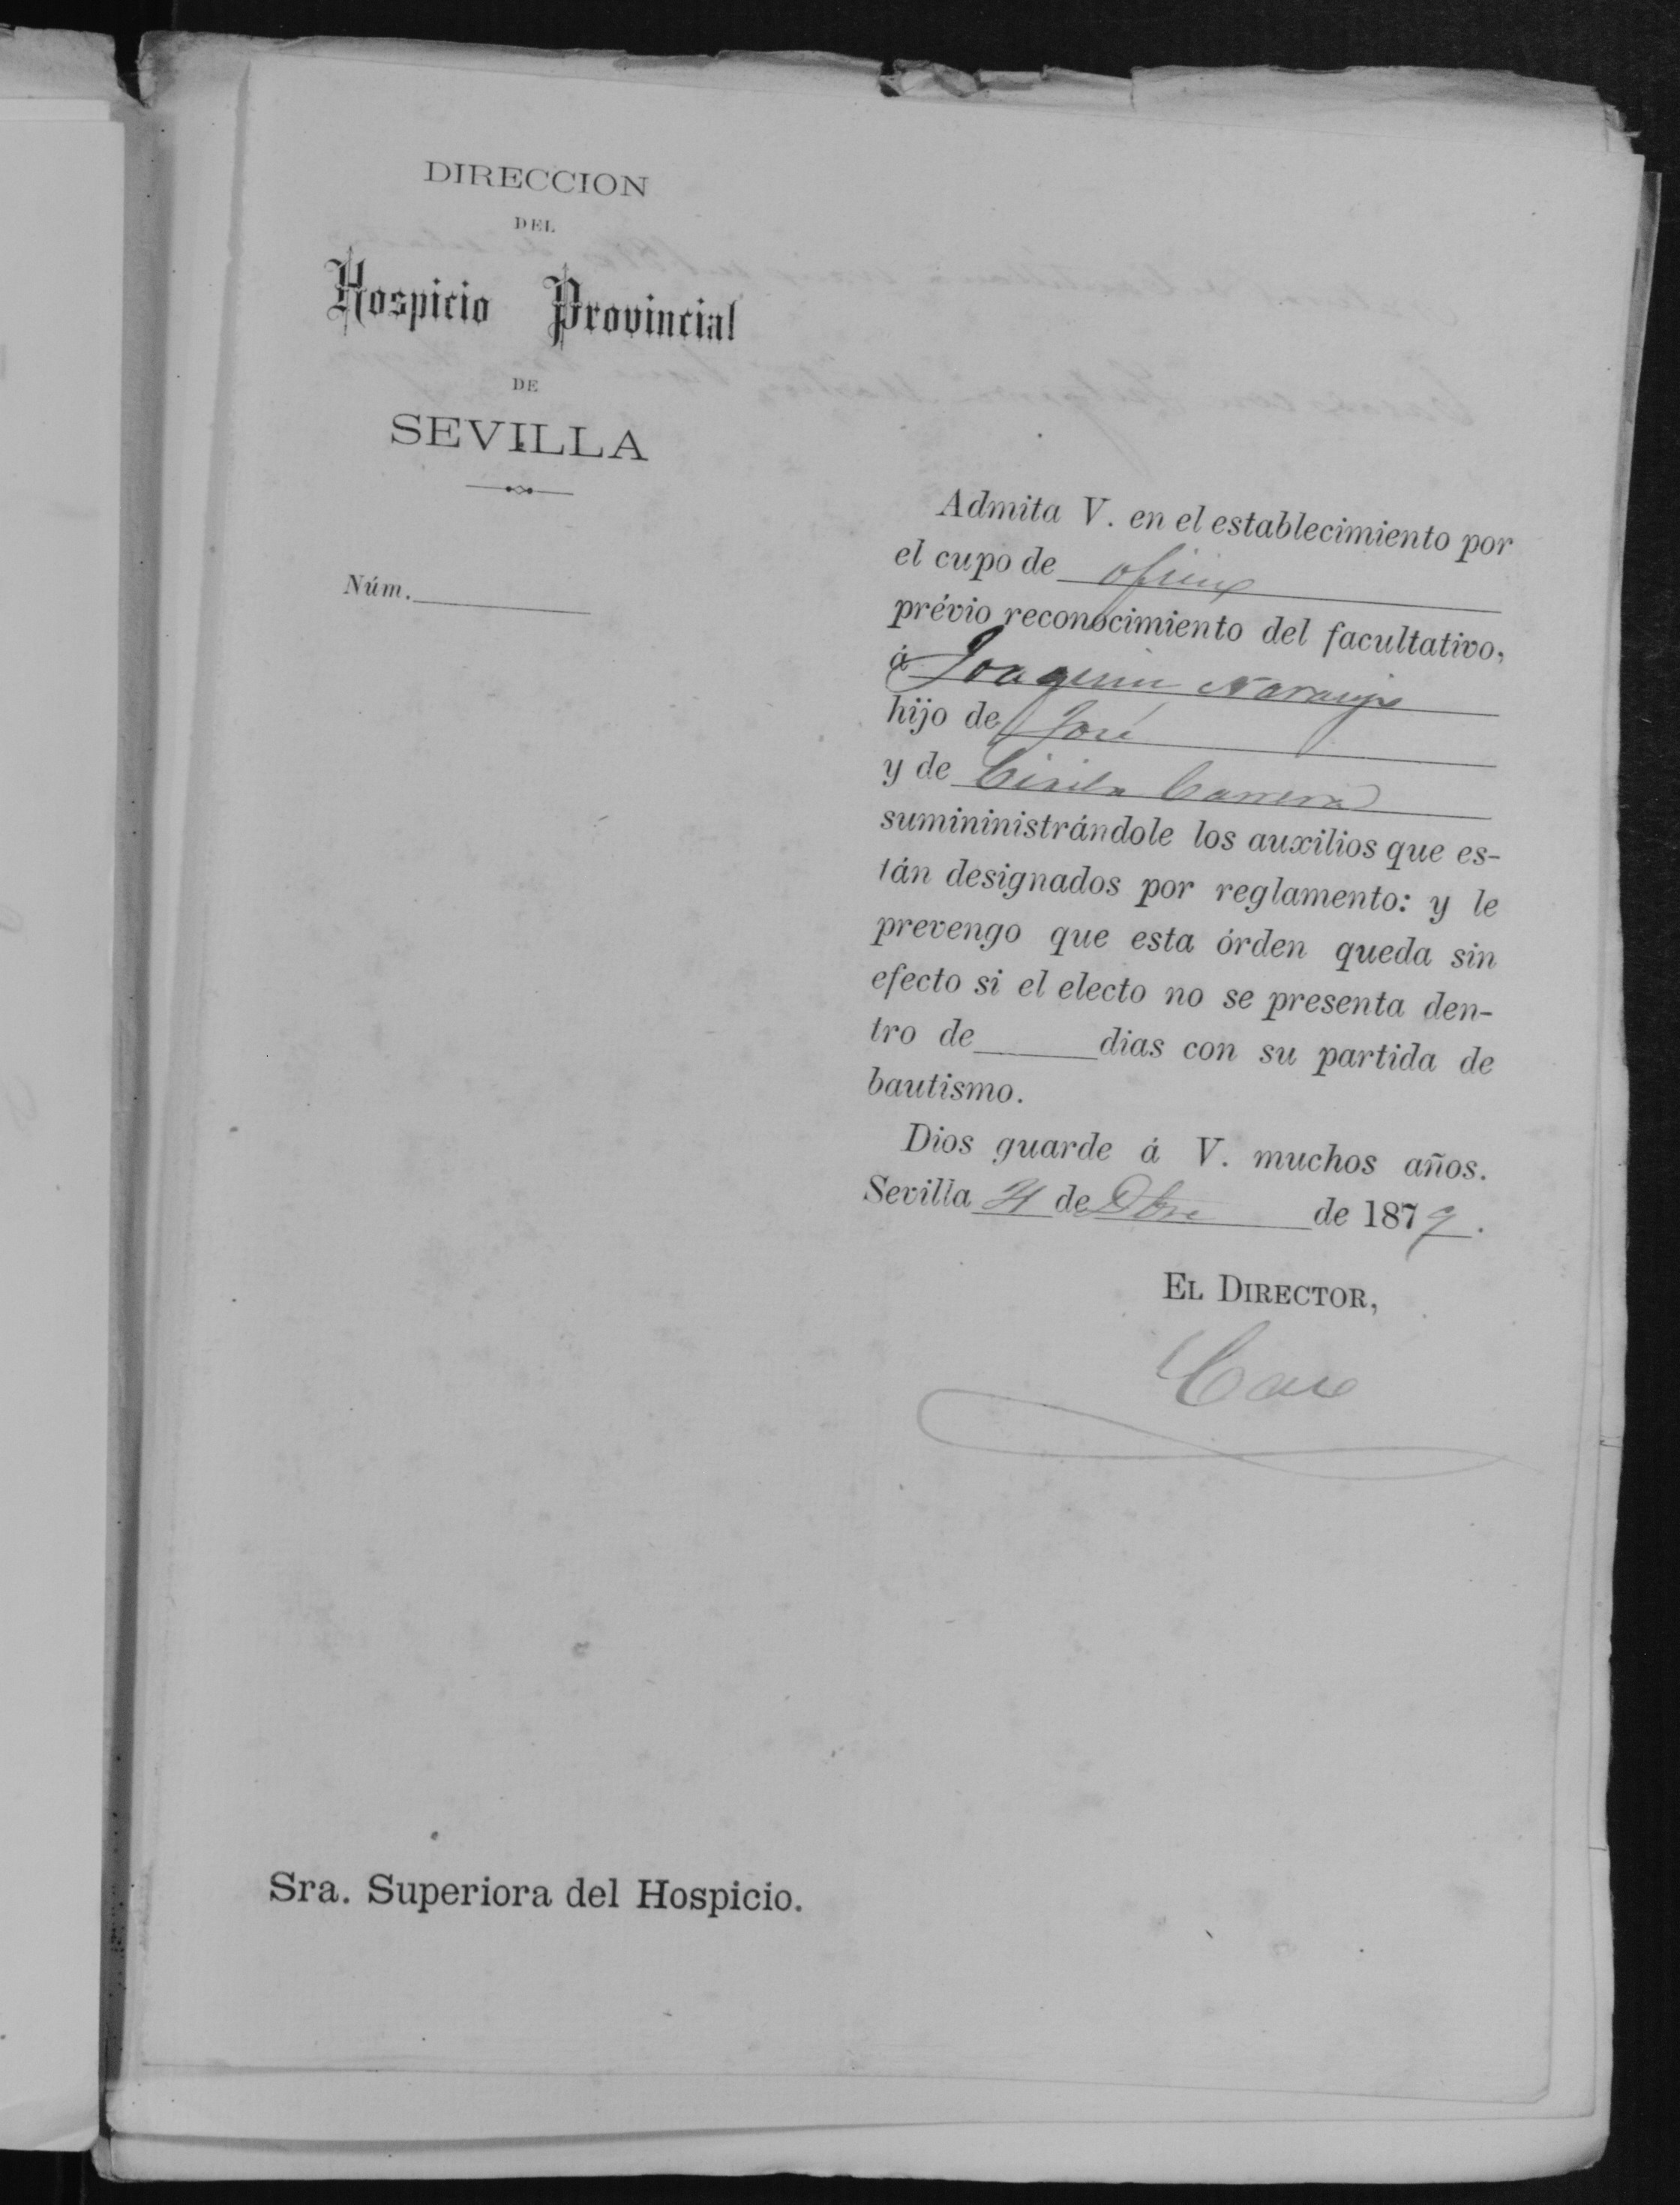 DIRECCION
DEL
Hospicio Provincial
DE
SEVILLA
Núm.
Admita V. en el establecimiento por
el cupo de
prévio reconocimiento del facultativo,
á Joaquin Naranjo
hijo de José
y de Carrera
sumininistrándole los auxilios que es-
tán designados por reglamento: y le
prevengo que esta órden queda sin
efecto si el electo no se presenta den-
tro de dias con su partida de
bautismo.
Dios guarde á V. muchos años.
Sevilla de Dbre de 1879.
EL DIRECTOR,
Sra. Superiora del Hospicio.